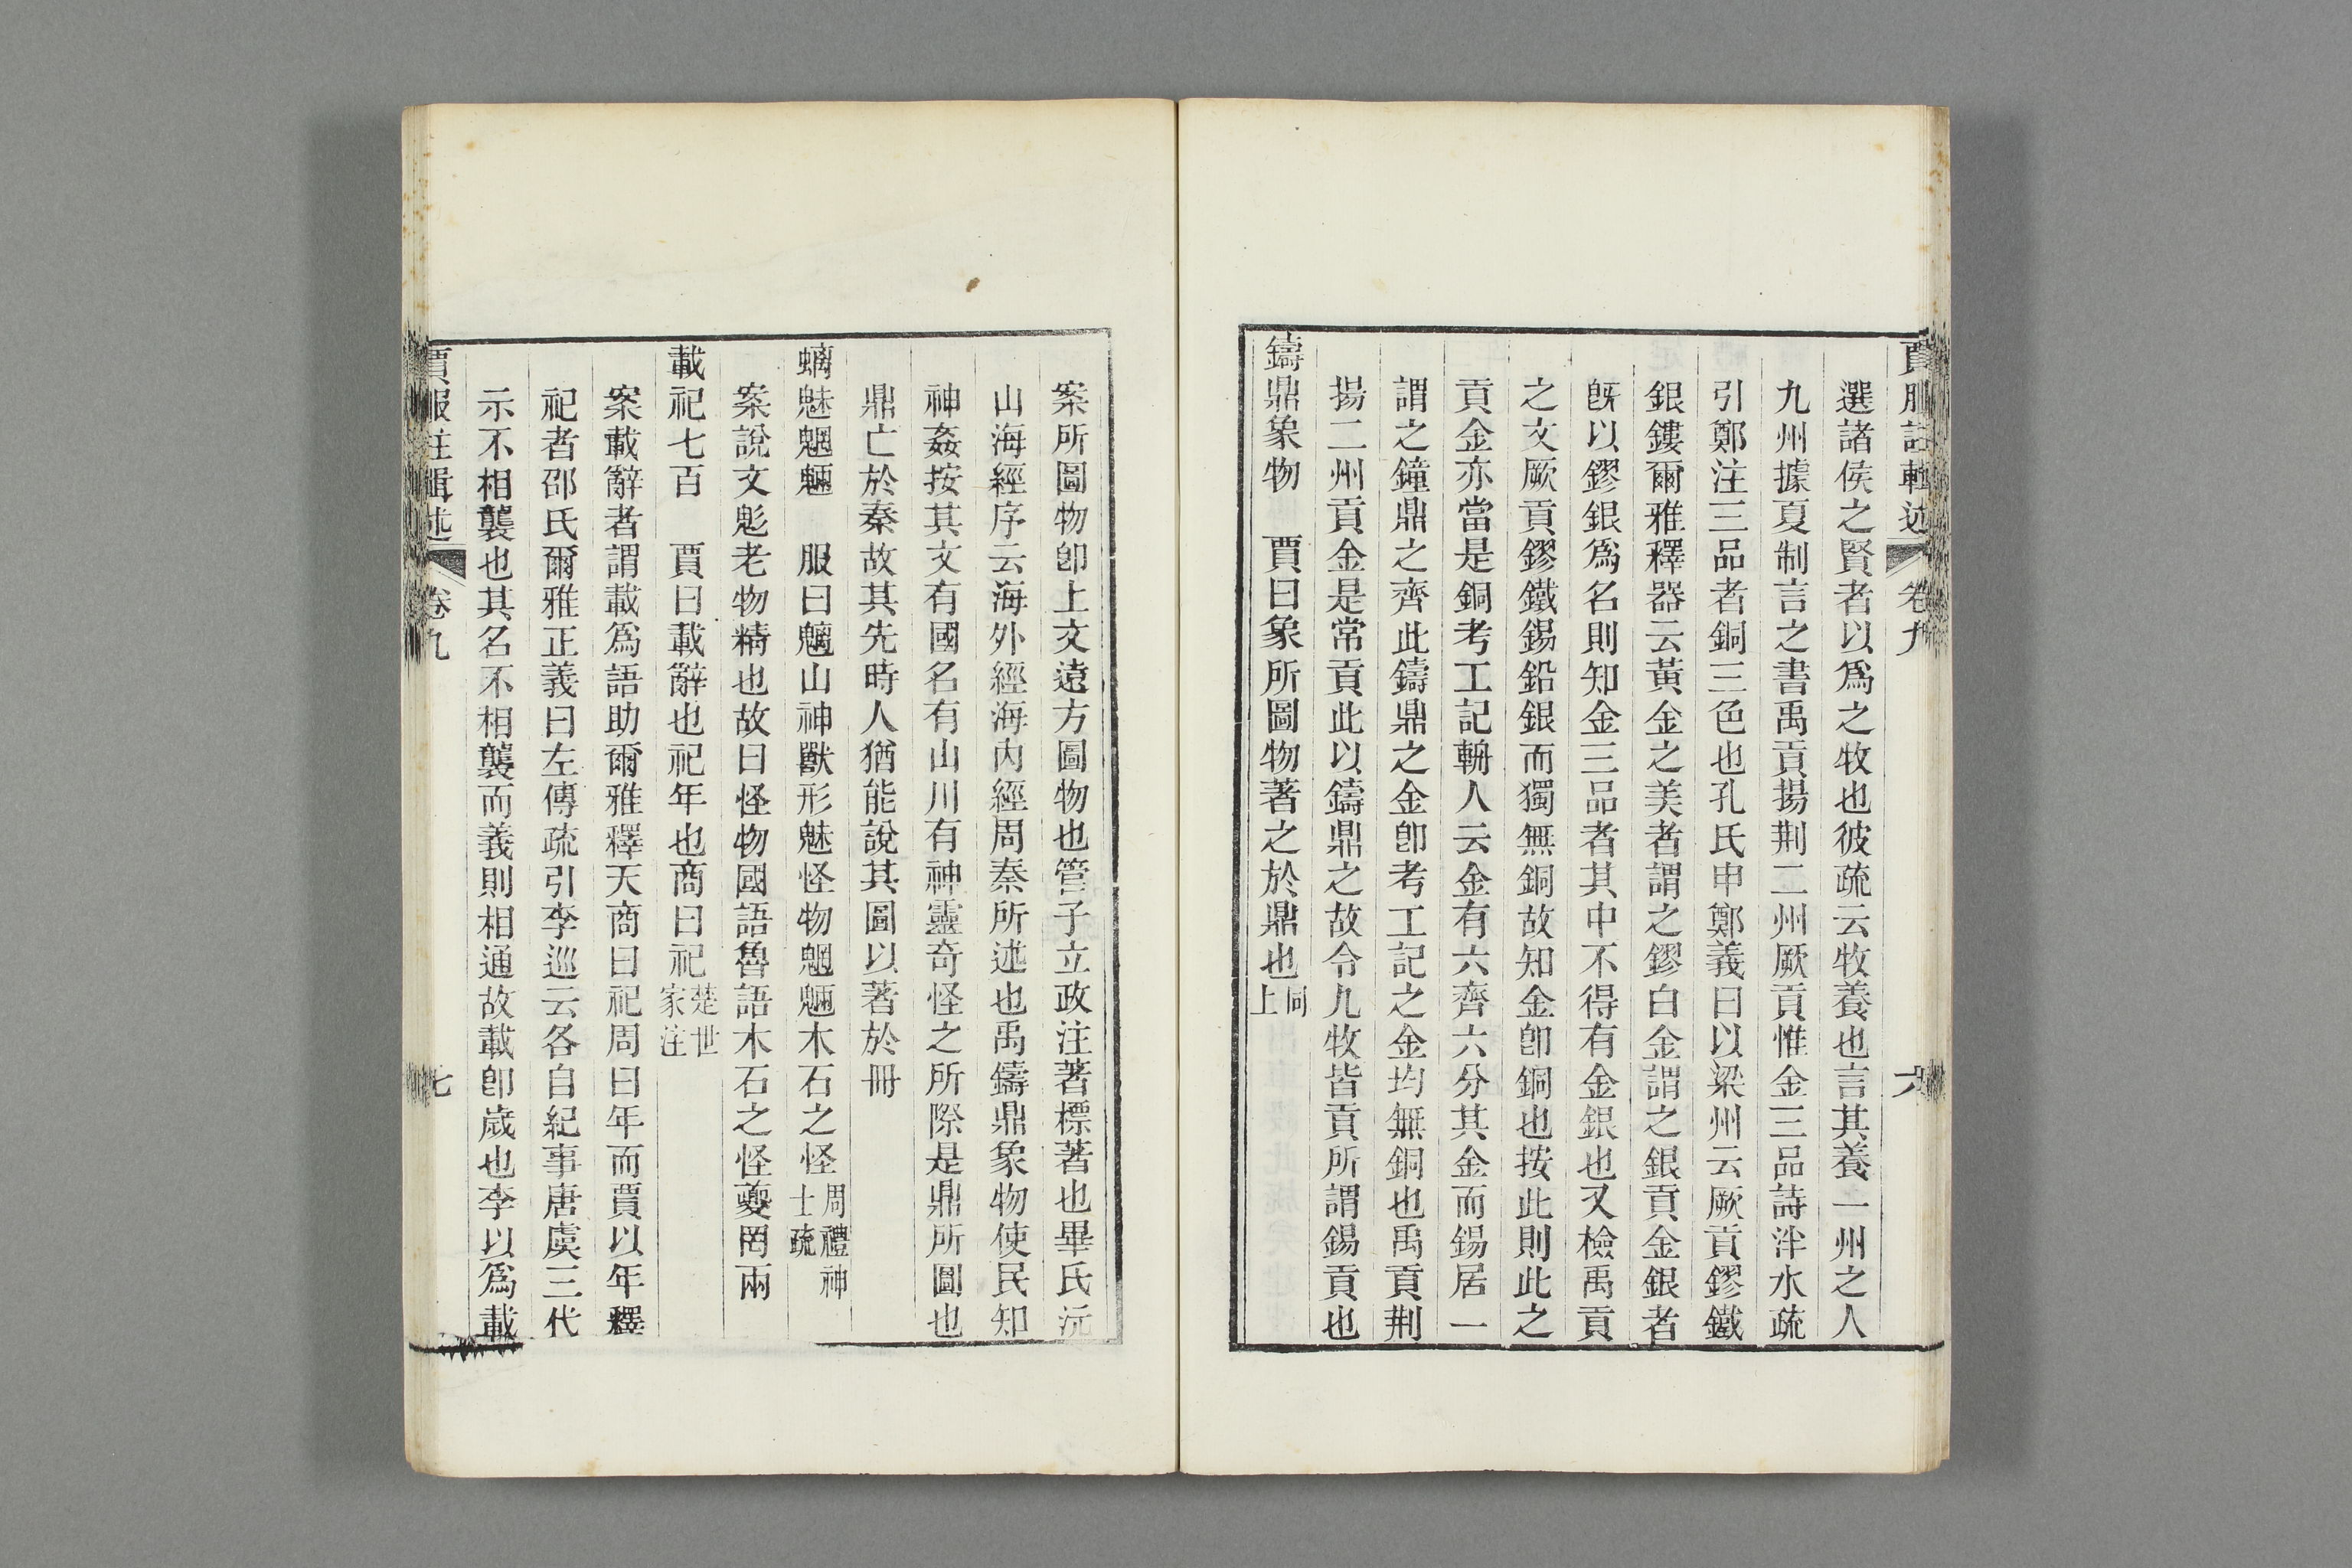 賈服註輯述 卷九 六
選諸侯之賢者以爲之牧也彼疏云牧養也言其養一州之人
九州據夏制言之書禹貢揚荆二州厥貢惟金三品詩泮水疏
引鄭注三品者銅三色也孔氏申鄭義曰以梁州云厥貢鏐鐵
銀鏤爾雅釋器云黃金之美者謂之鏐白金謂之銀貢金銀者
旣以鏐銀爲名則知金三品者其中不得有金銀也又檢禹貢
之文厥貢鏐鐵錫鉛銀而獨無銅故知金卽銅也按此則此之
貢金亦當是銅考工記輈人云金有六齊六分其金而錫居一
謂之鐘鼎之齊此鑄鼎之金卽考工記之金均無銅也禹貢荆
揚二州貢金是常貢此以鑄鼎之故令九牧皆貢所謂錫貢也
鑄鼎象物　賈曰象所圖物著之於鼎也同上
案所圖物卽上文遠方圖物也管子立政注著標著也畢氏沅
山海經序云海外經海內經周秦所述也禹鑄鼎象物使民知
神姦按其文有國名有山川有神靈奇怪之所際是鼎所圖也
鼎亡於秦故其先時人猶能說其圖以著於冊
螭魅魍魎　服曰魑山神獸形魅怪物魍魎木石之怪周禮神士疏
案說文鬽老物精也故曰怪物國語魯語木石之怪夔罔兩
載祀七百　賈曰載辭也祀年也商曰祀楚世家注
案載辭者謂載爲語助爾雅釋天商曰祀周曰年而賈以年釋
祀者邵氏爾雅正義曰左傳疏引李巡云各自紀事唐虞三代
示不相襲也其名不相襲而義則相通故載卽歲也李以爲載
賈服註輯述 卷九 七